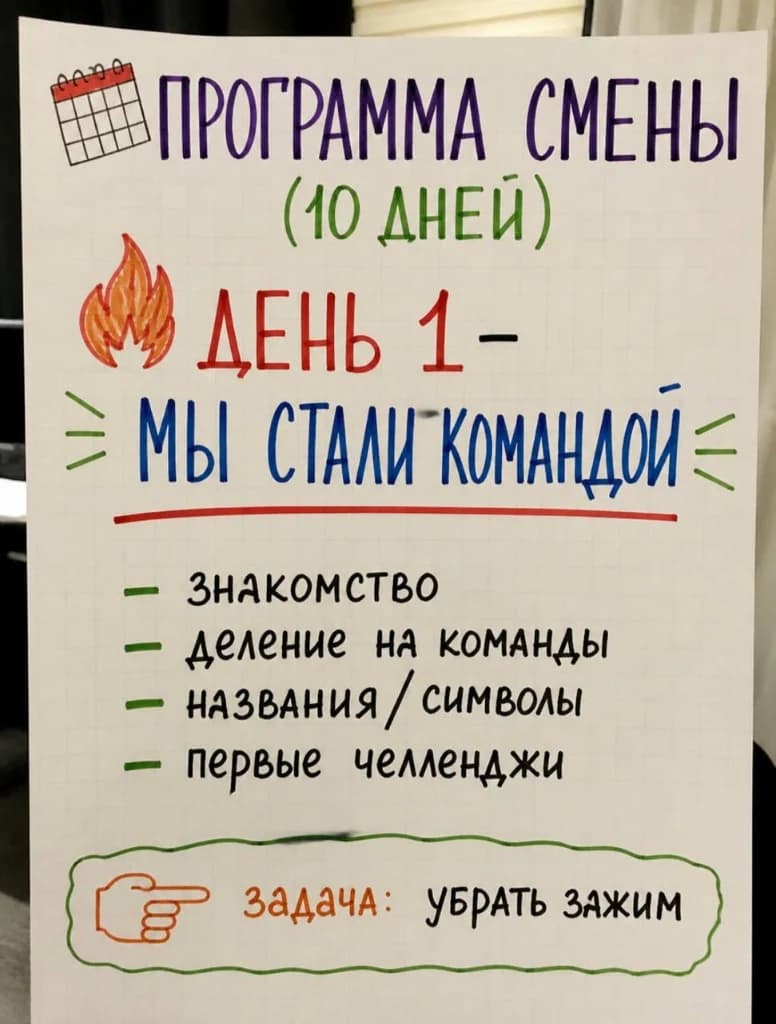 ПРОГРАММА СМЕНЫ
(10 ДНЕЙ)
ДЕНЬ 1 -
МЫ СТАЛИ КОМАНДОЙ
- знакомство
- деление на команды
- названия / символы
- первые челленджи
задача: убрать зажим